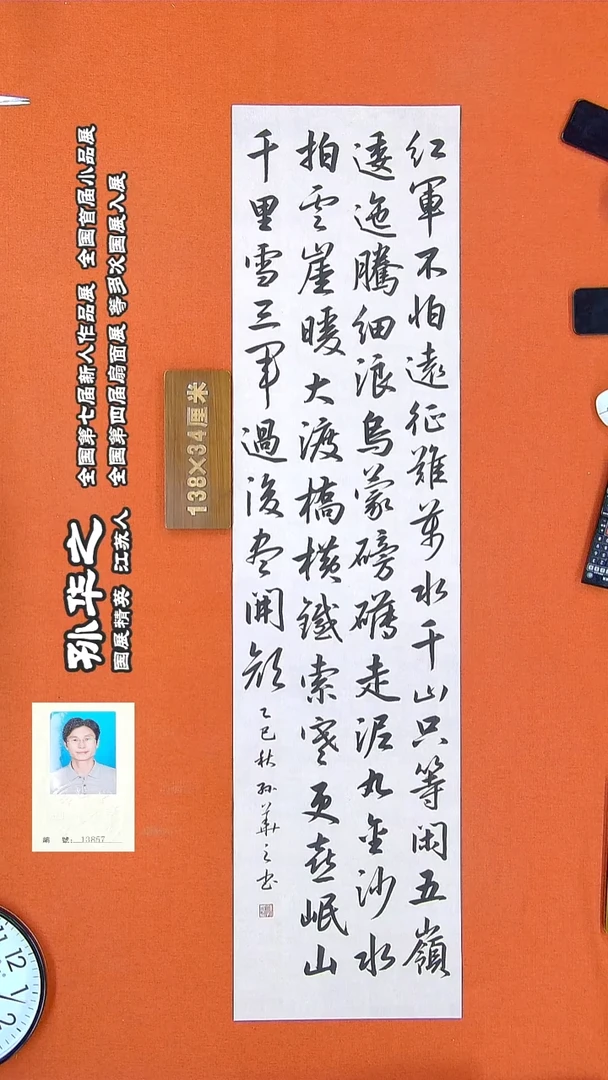 紅軍不怕遠征難萬水千山只等閑五嶺
逶迤騰細浪烏蒙磅礴走泥丸金沙水
拍雲崖暖大渡橋橫鐵索寒更喜岷山
千里雪三軍過後盡開顏
乙巳秋孫華之书
138×34厘米
孙华之
国展精英 江苏人
全国第七届新人作品展 全国首届小品展
全国第四届扇面展 等多次国展入展
編 號: 13857
11
12
1
2